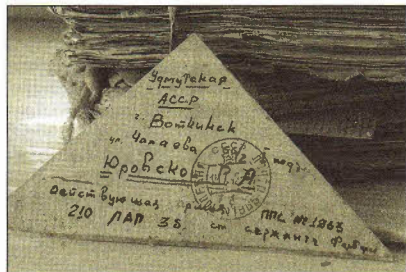 Удмутская
АССР
г. Воткинск
ул. Чапаева
Юровско
Действующая армия ППС № 1863
210 ЛАП 35 ст сержант